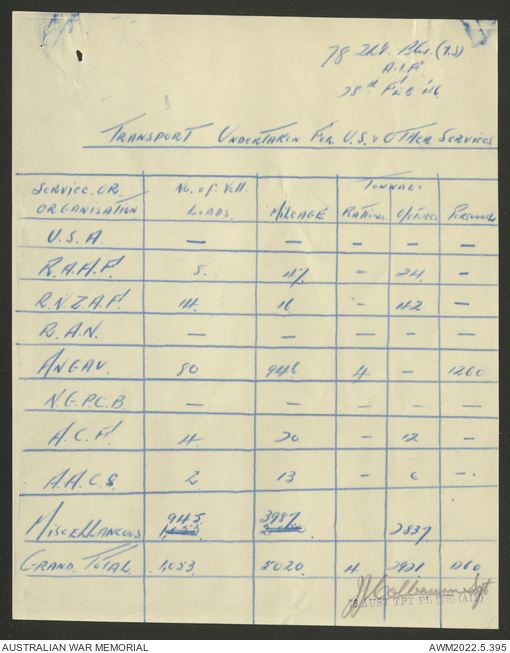 78 Tpt. Pl. (T.S)
A.I.F
28th Feb '46
Transport Undertaken For U.S. & Other Services
Service or Organisation No. of Veh. Loads. Mileage Tonnage Rations Ostores Personnel
U.S.A. — — — — —
R.A.A.F. 8. 47 — 24 —
R.N.Z.A.F. 14 16 — 42 —
R.A.N. — — — — —
Angau. 80 946 4 — 1260
N.G.P.C.B — — — — —
A.C.F. 4 20 — 12 —
A.A.C.S 2 13 — 6 —
Miscellaneous 945 3987 2837
Grand Total. 1053 5020 4 2921 1260
Sgt
78 AUST TPT PL (AIF)
AUSTRALIAN WAR MEMORIAL AWM2022.5.395